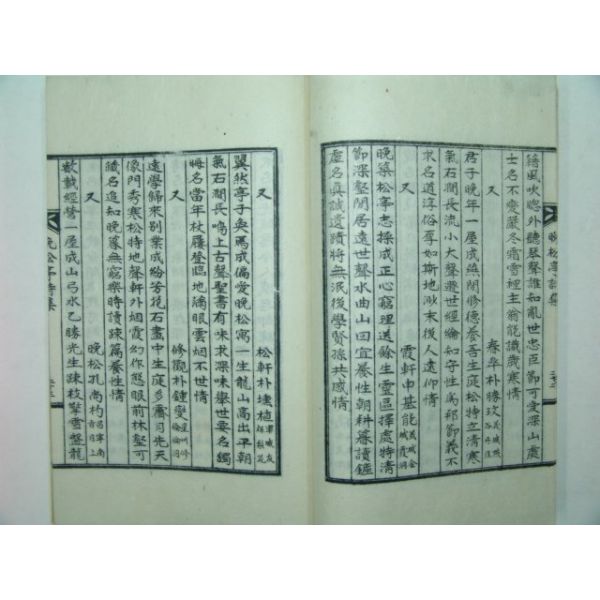 晩松亭詩集
籟風吹窓外聽琴聲誰知亂世忠臣節可愛深山處
士名不變嚴冬霜雪裡主翁能識歲寒情
又 春皐朴勝玟
君子晩年一屋成與閒修德養吾生庭松特立淸寒
氣石澗長流小大聲遯世經綸知守性爲邦節義不
求名道淳俗厚如斯地後人遺仰情
又 霞軒申基能
晩築松亭志操成正心窮理送餘生靈區擇處特淸
節深壑閒居遠世聲水曲山回宜養性朝耕暮讀鑑
虛名眞誠遺蹟將無泯後學賢孫共感情
又 松軒朴壎植
翼然亭子奐焉成偏愛晩松寓一生龍山高出平朝
氣石澗長鳴上古聲聖書有味求深味擧世要名
悔名當年杖屨登臨地滿眼雲烟不世情
又 修觀朴鍾燮 星州修倫
遠學歸來別業成紛芳花石畵中生庭多霽月光天
像門秀寒松特地聲軒外烟霞幻作態眼前林壑可
藏名追知晩篆無窮樂時讀疎篇養性情
又 晩松孔尙杓 昌寧南旨
欲載經營一屋成山弓水乙勝先生疎枝擎雪盤龍
晩松亭詩集